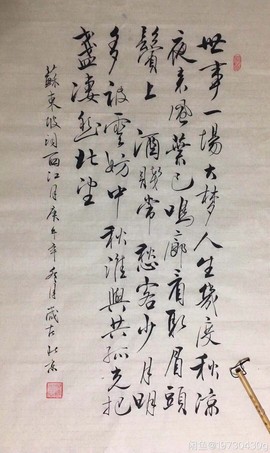 世事一場大梦人生幾度秋涼
夜来風葉已鳴廊看取眉頭
鬢上 酒賤常愁客少月明
多被雲妨中秋誰與共孤光把
盞凄然北望
蘇東坡词西江月庚午年